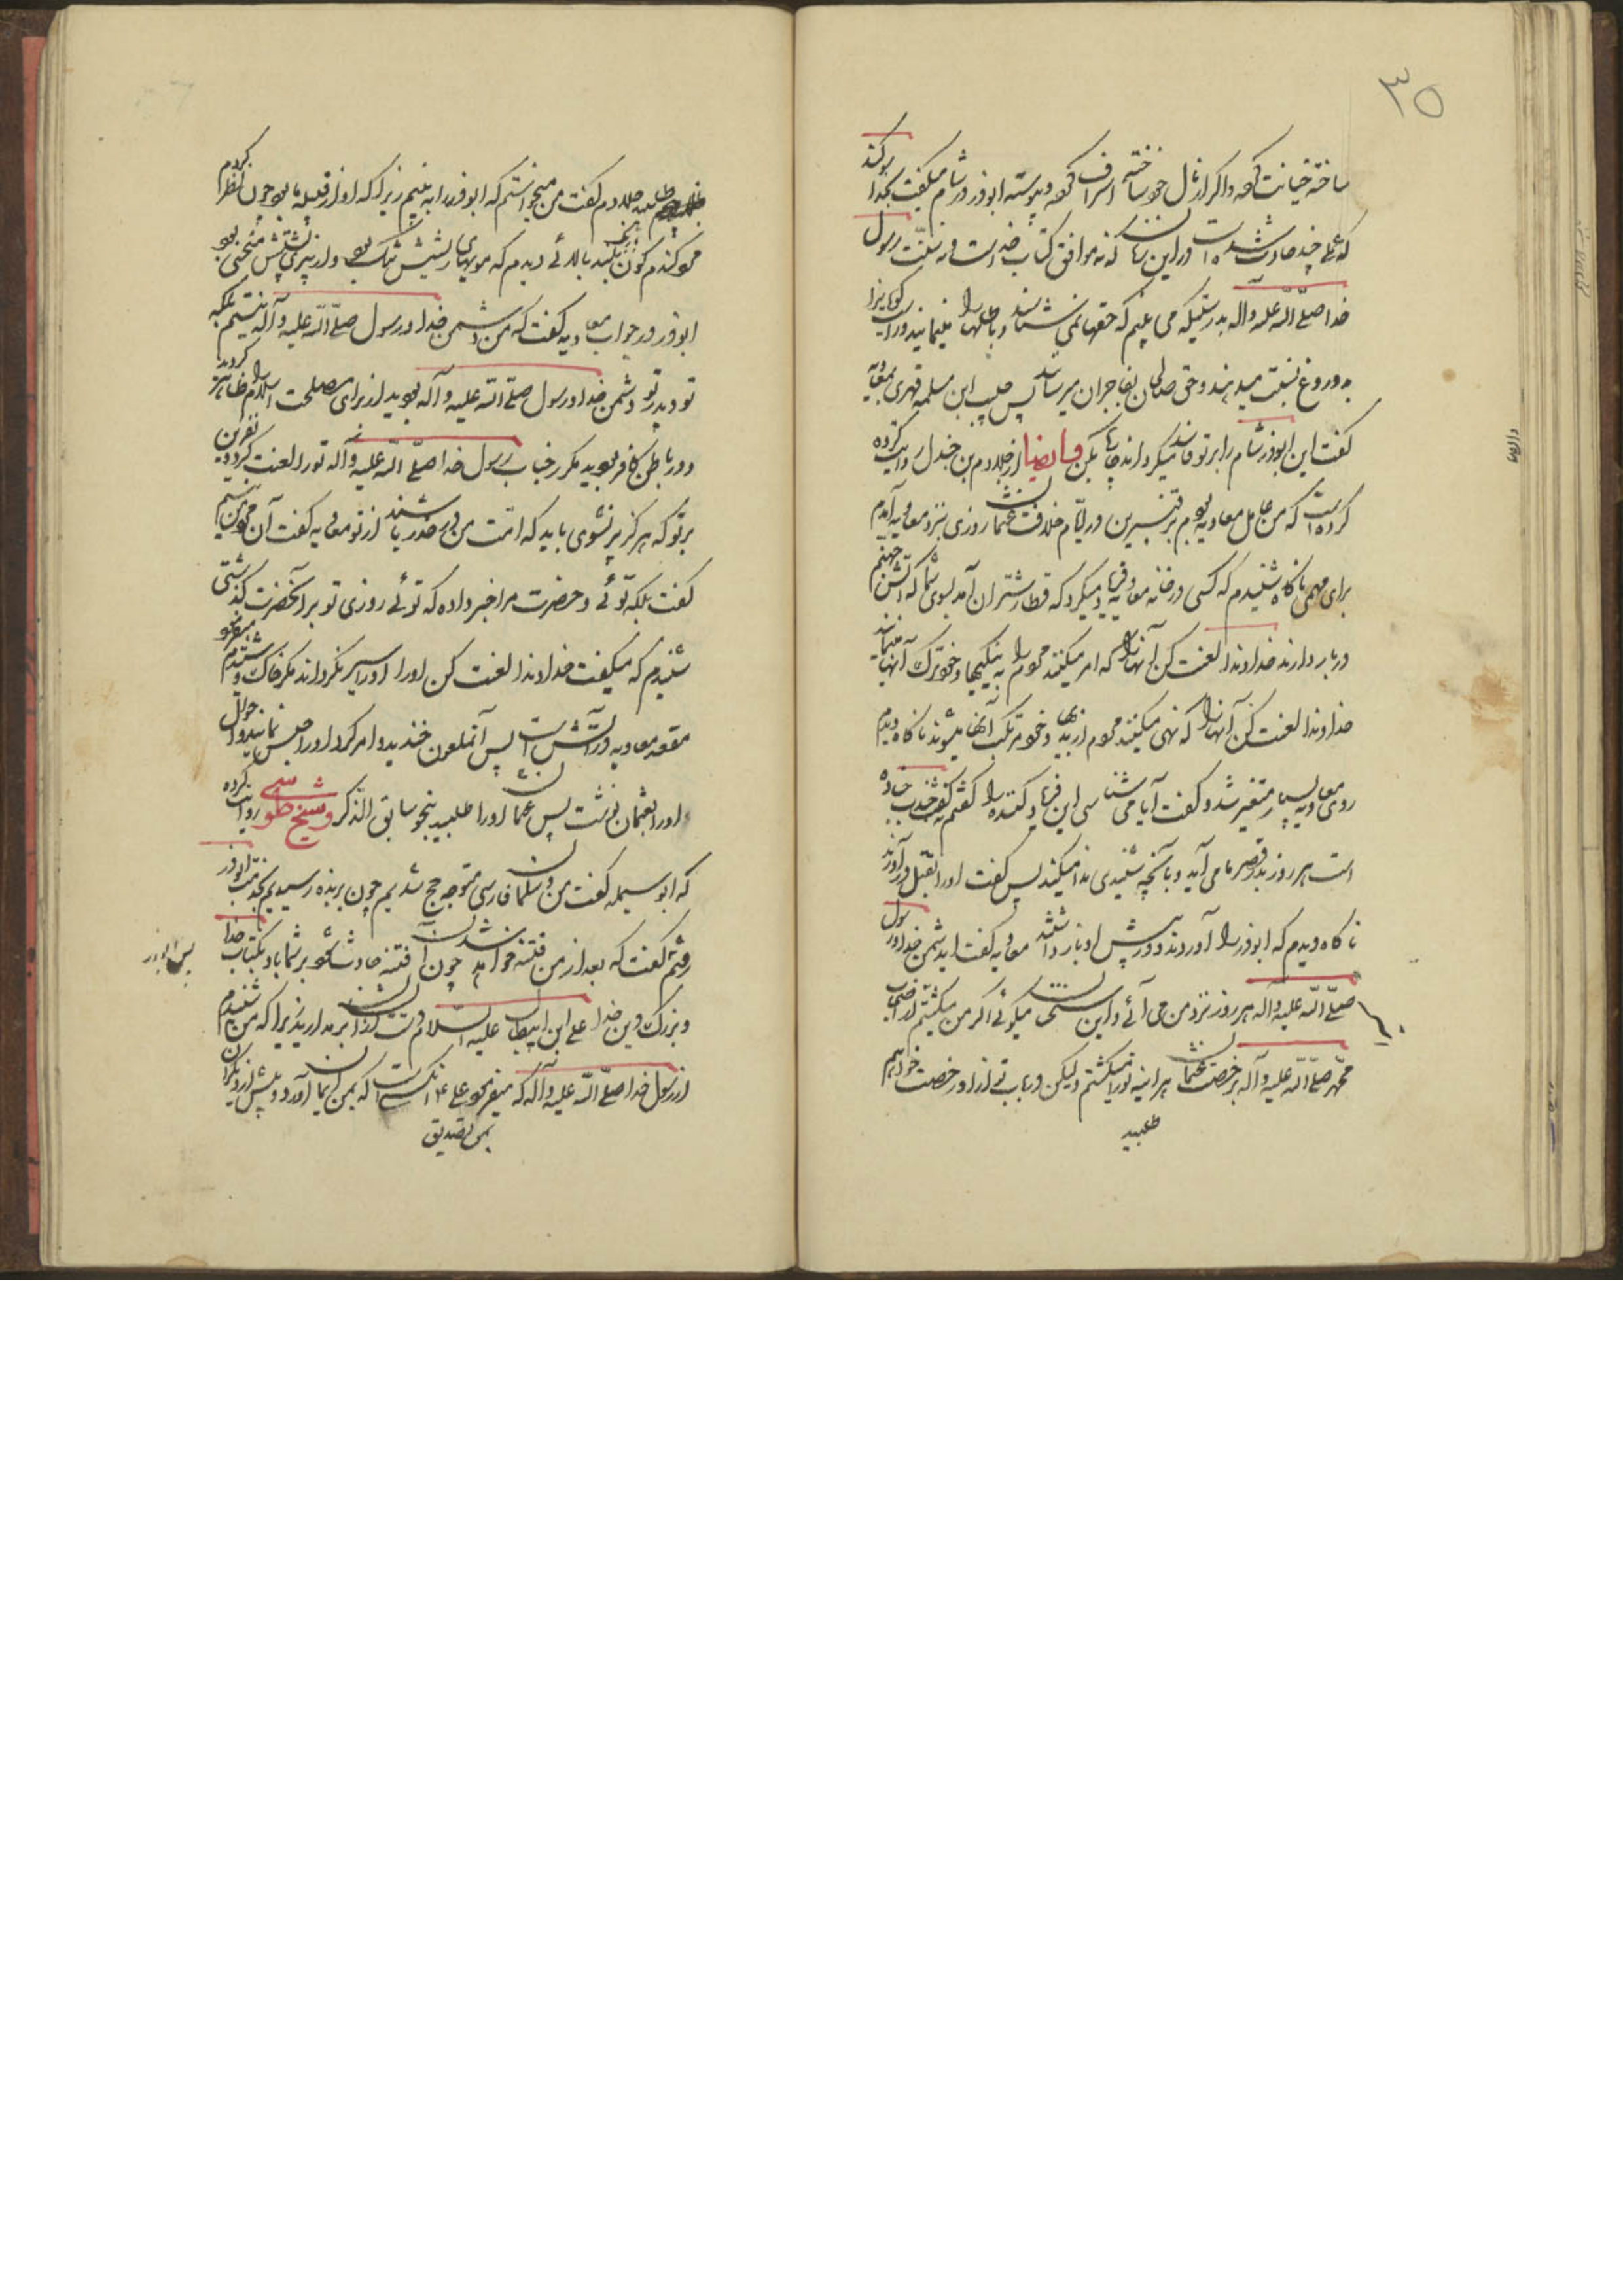 ۳۵
ساخته خیانت کرده و اگر از مال خود ساخته اسراف کرده و پیوسته ابوذر در شام میگفت بخدا سوکند
که عملی چند حادث شده است در این زمان که نه موافق کتاب خداست و نه سنّت رسول
خدا صلّی الله علیه و آله بدرستیکه می بینم که حقها نمی شناسند و باطلها را مینمایند و راست کویانرا
بدروغ نسبت میدهند و حق صالحان بفاجران میرسانند پس حبیب ابن مسلمه فهری بمعاویه
کفت این ابوذر شام را بر تو فاسد میکرداند چاره بکن و ایضا از جلادم بن جندل روایت کرده
کرده است که من عامل معاویه بودم بر قنسرین در ایّام خلافت عثمان روزی بنزد معاویه آمدم
برای مهمی ناکاه شنیدم که کسی در خانه معاویه فریاد میکرد که قطار شتران آمد بسوی شما که آتش جهنم
در بار دارند خداوندا لعنت کن آنها را که امر میکنند مردم را به نیکیها و خود ترک آنها مینمایند
خداوندا لعنت کن آنها را که نهی میکنند مردم از بدیها و خود مرتکب آنها میشوند ناکاه دیدم
روی معاویه بسیار متغیر شد و کفت آیا می شناسی این فریاد کننده را کفتم نه کفت جندب جناده
است هر روز بدر قصر ما می آید و بآنچه شنیدی ندا میکند پس کفت او را بقتل درآورند
ناکاه دیدم که ابوذر را آوردند و در پیش او بازداشتند معاویه کفت ای دشمن خدا و رسول
صلّی الله علیه و آله هر روز نزد من می آئی و این سخنان میکوئی اکر من میکشتم از اصحاب
محمّد صلّی الله علیه و آله بی رخصت عثمان هر آینه تو را میکشتم ولیکن در باب تو از او رخصت خواهم
طلبید
طلبید جلادم کفت من میخواستم که ابوذر را ببینم زیرا که او از قبیله ما بود چون نظر کردم
مرد کندم کون بلند بالائی دیدم که مویهای ریشش تنک بود و از پیری پشتش منحنی بود
ابوذر در جواب معاویه کفت که من دشمن خدا و رسول صلّی الله علیه و آله نیستم بلکه
تو و پدر تو دشمن خدا و رسول صلّی الله علیه و آله بودید از برای مصلحت اسلام را ظاهر کردید
و در باطن کافر بودید مکرر جناب رسول خدا صلّی الله علیه و آله تو را لعنت کرد و نفرین
بر تو که هرکز سیر نشوی باید که امّت من در حذر باشند از تو معاویه کفت آن مرد من نیستم
کفت بلکه توئی و حضرت مرا خبر داده که توئی روزی تو بر آنحضرت کذشتی
شنیدم که میکفت خداوندا لعنت کن او را و او را سیر نکرداند مکر خاک و شنیدم میفرمود
مقعد معاویه در آتش است پس آنملعون خندید و امر کرد او را حبس نمایند و احوال
او را بعثمان نوشت پس عثمان او را طلبید بنحو سابق الذکر و شیخ طوسی روایت کرده
که ابو سیله کفت من و سلمان فارسی متوجه حج شدیم چون بربذه رسیدیم بخدمت ابوذر
رفتم کفت که بعد از من فتنه خواهد شد چون آن فتنه حادث شود بر شما باد بکتاب خدا
پس ابوذر
و بزرک دین خدا علی ابن ابیطالب علیه السلام دست از ایشان بر مدارید زیرا که من شنیدم
از رسول خدا صلّی الله علیه و آله که میفرمود علی اول کسی است که بمن ایمان آورد و پیش از دیکران
بمن تصدیق